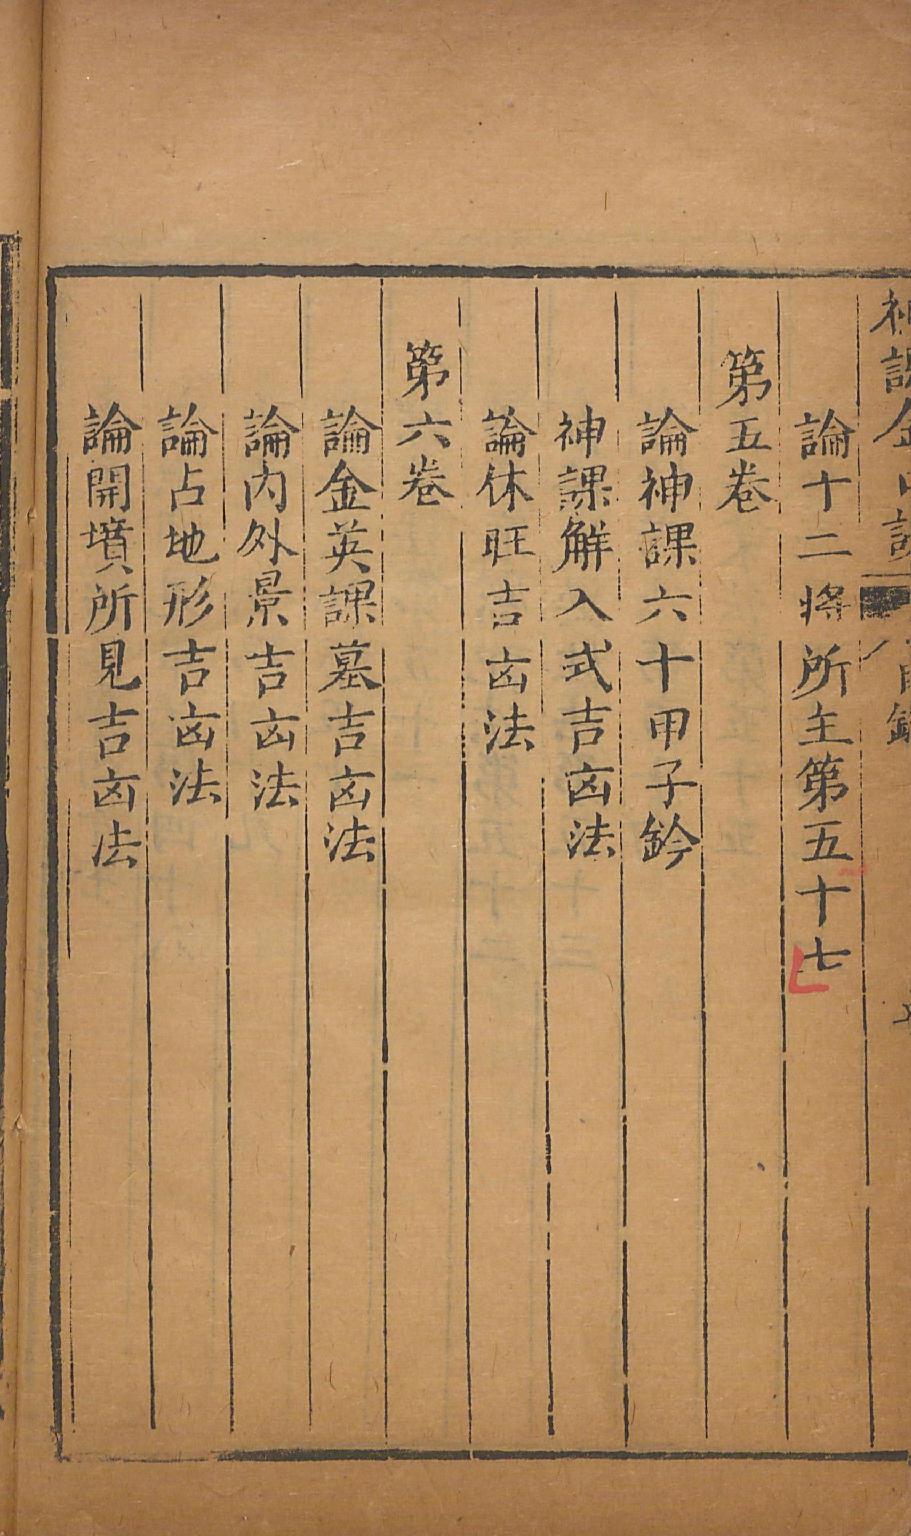 神課金口訣 目錄
論十二將所主第五十七
第五卷
論神課六十甲子鈐
神課解入式吉凶法
論休旺吉凶法
第六卷
論金英課墓吉凶法
論內外景吉凶法
論占地形吉凶法
論開墳所見吉凶法